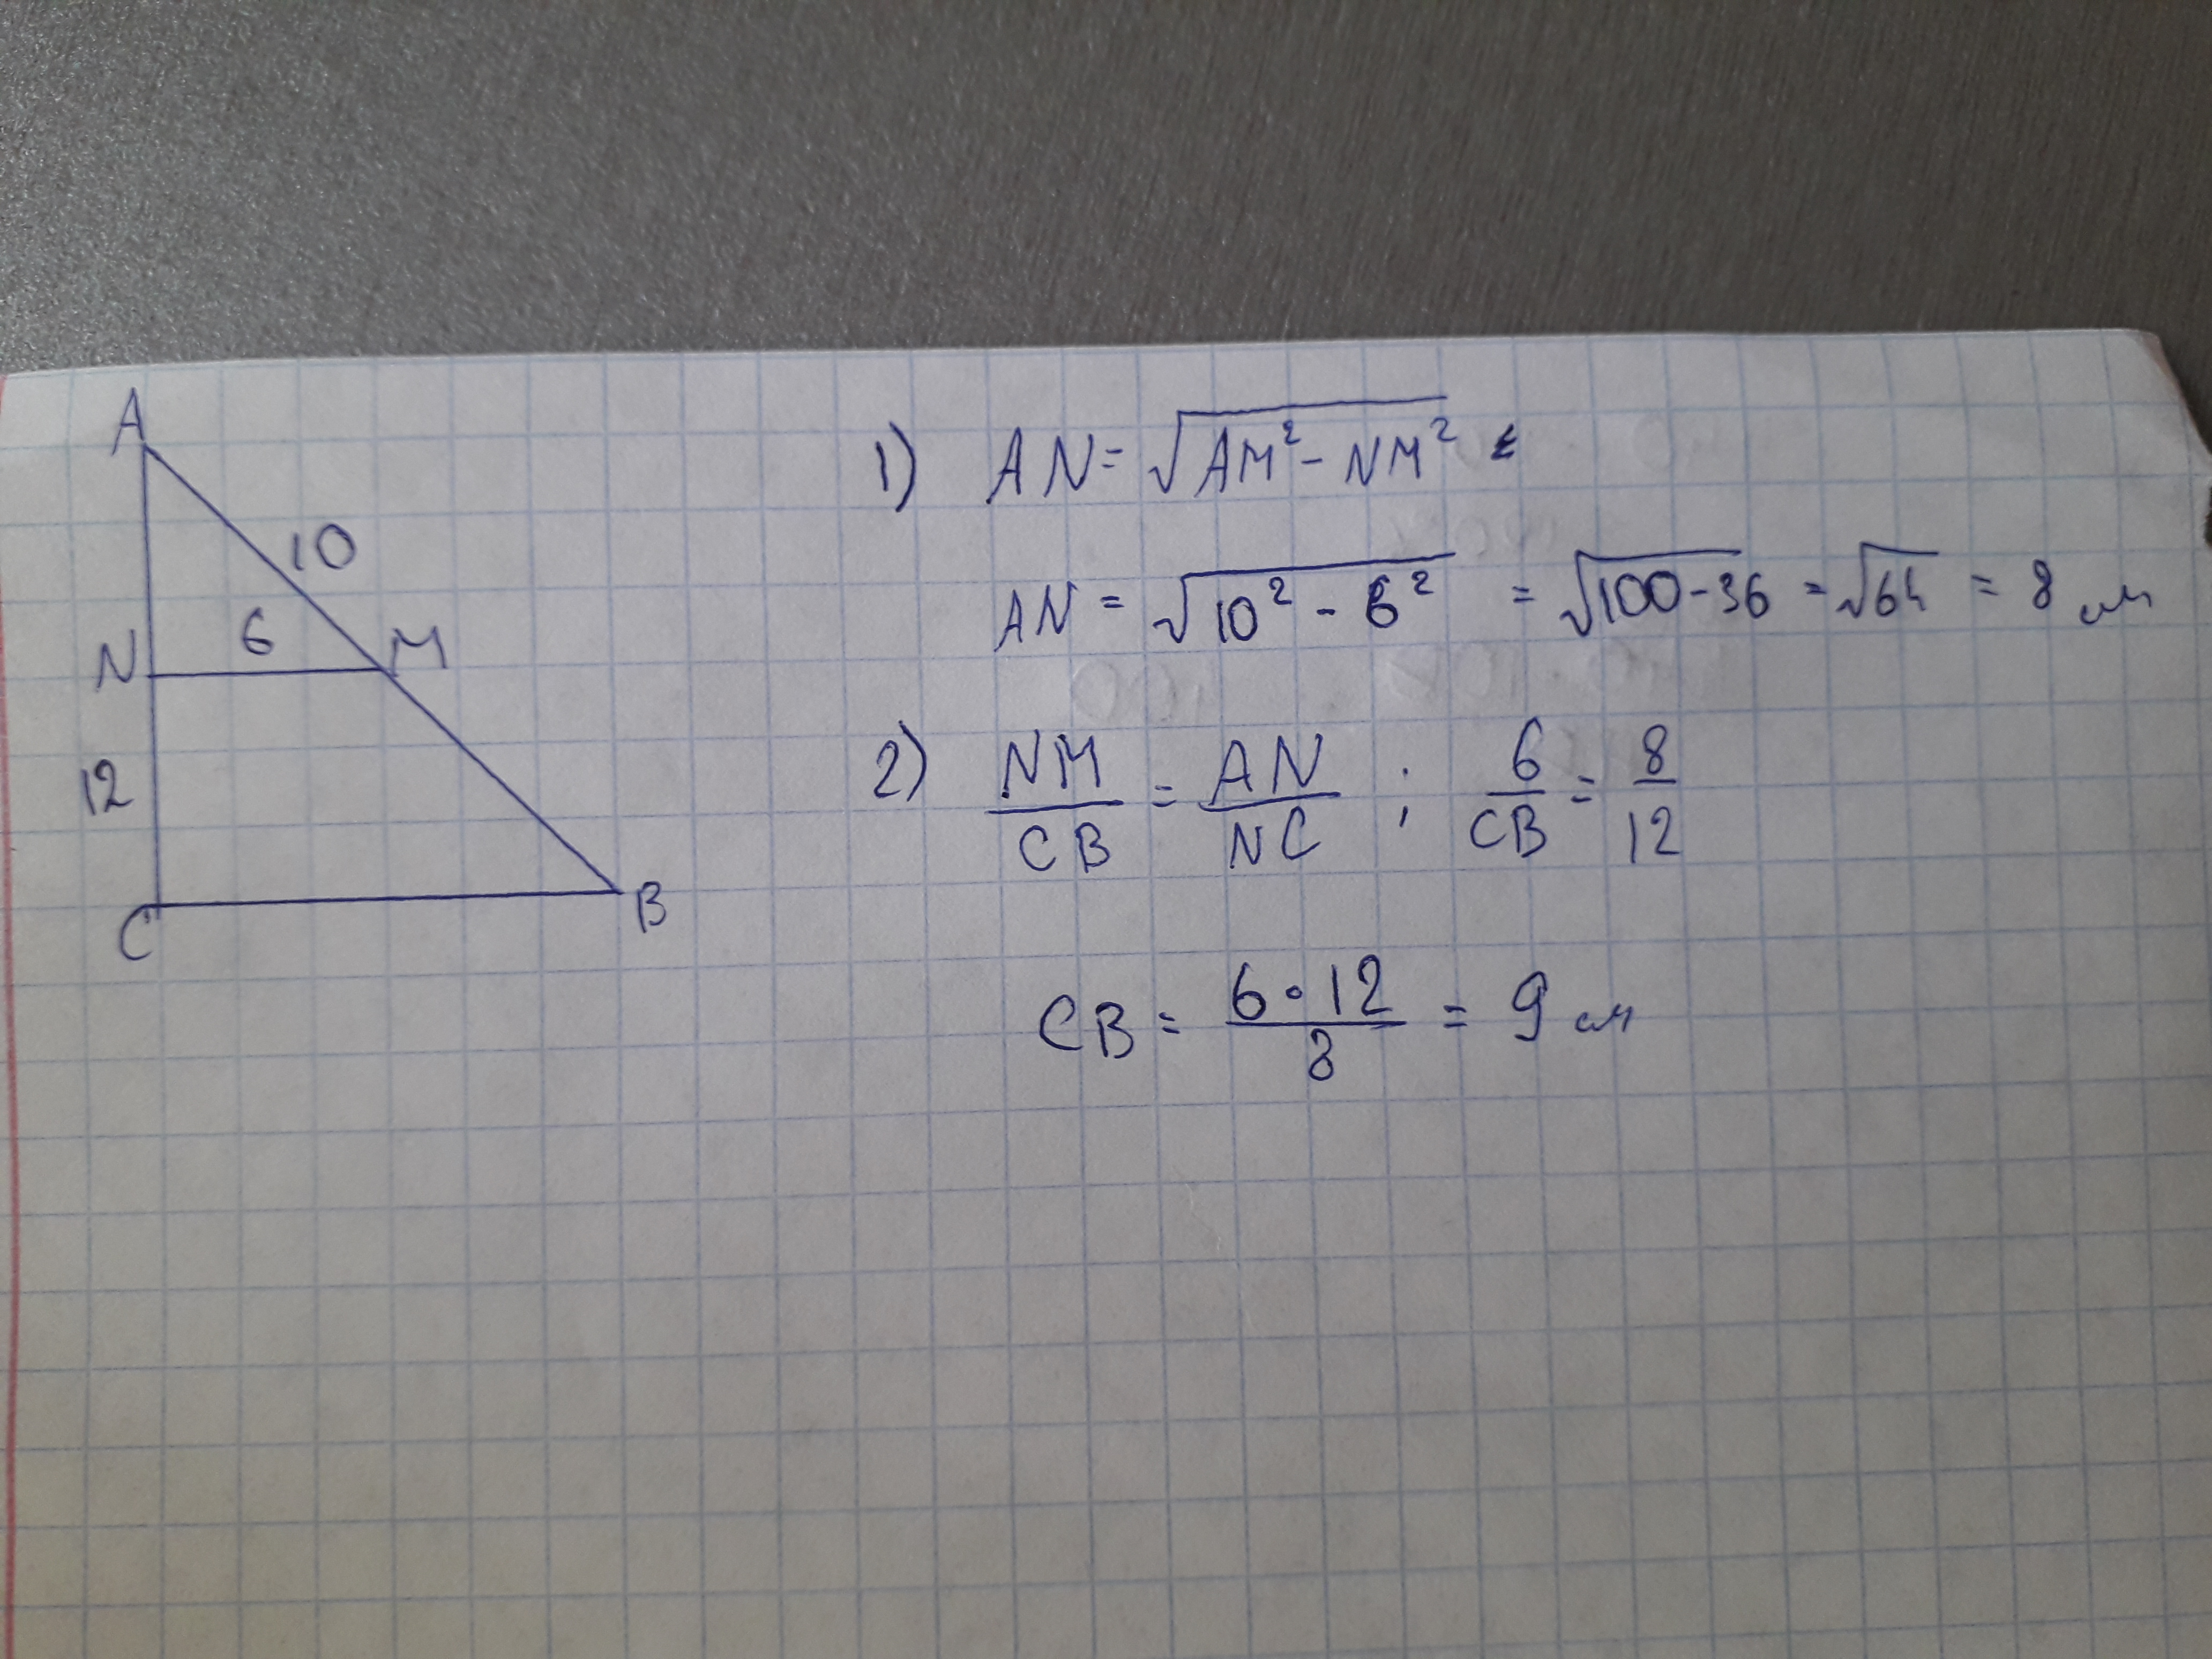 A
10
6
N M
12
C B
1) AN = √(AM² - NM²)
AN = √(10² - 6²) = √(100-36) = √64 = 8 см
2) NM/CB = AN/NC ; 6/CB = 8/12
CB = (6·12)/8 = 9 см